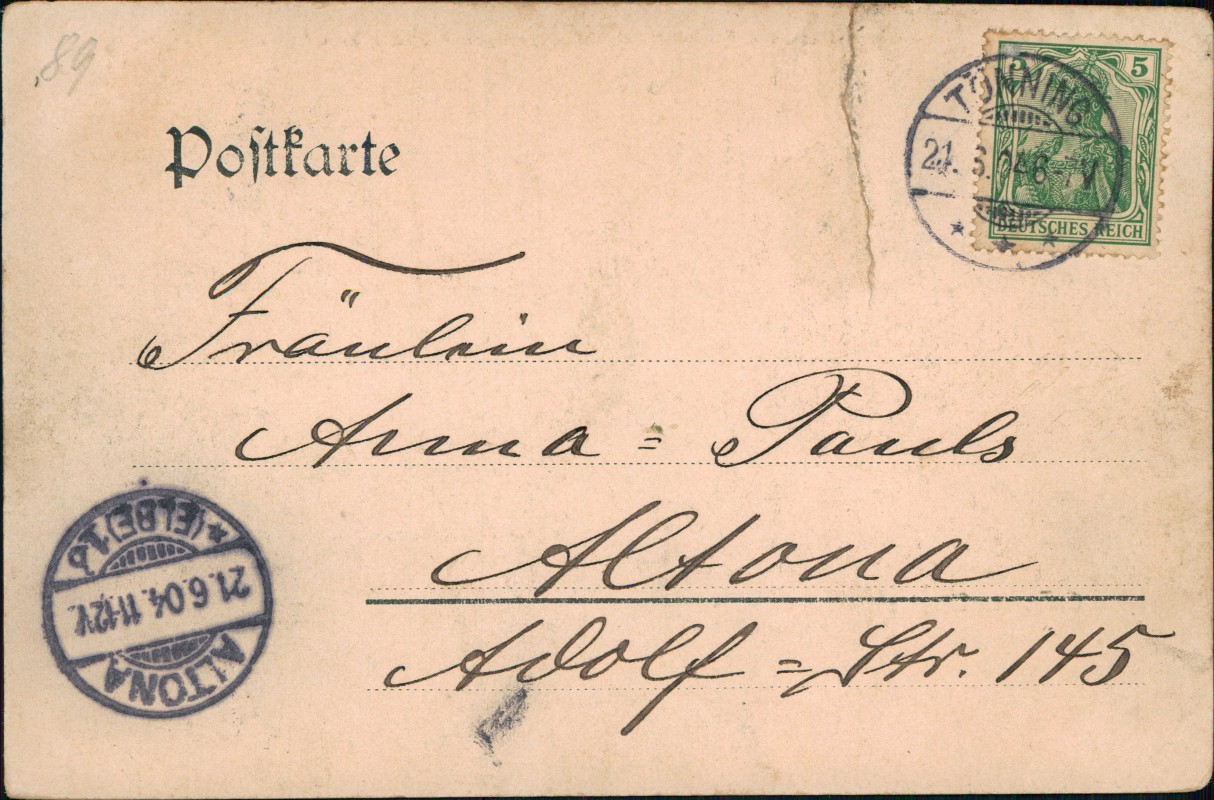 89
Postkarte
5 5
DEUTSCHES REICH
TÖNNING
21. 6. 04 6-7V
Fräulein
Anna = Pauls
Altona
Adolf = Str. 145
ALTONA
21.6.04. 11-12V.
* (ELBE) 1b